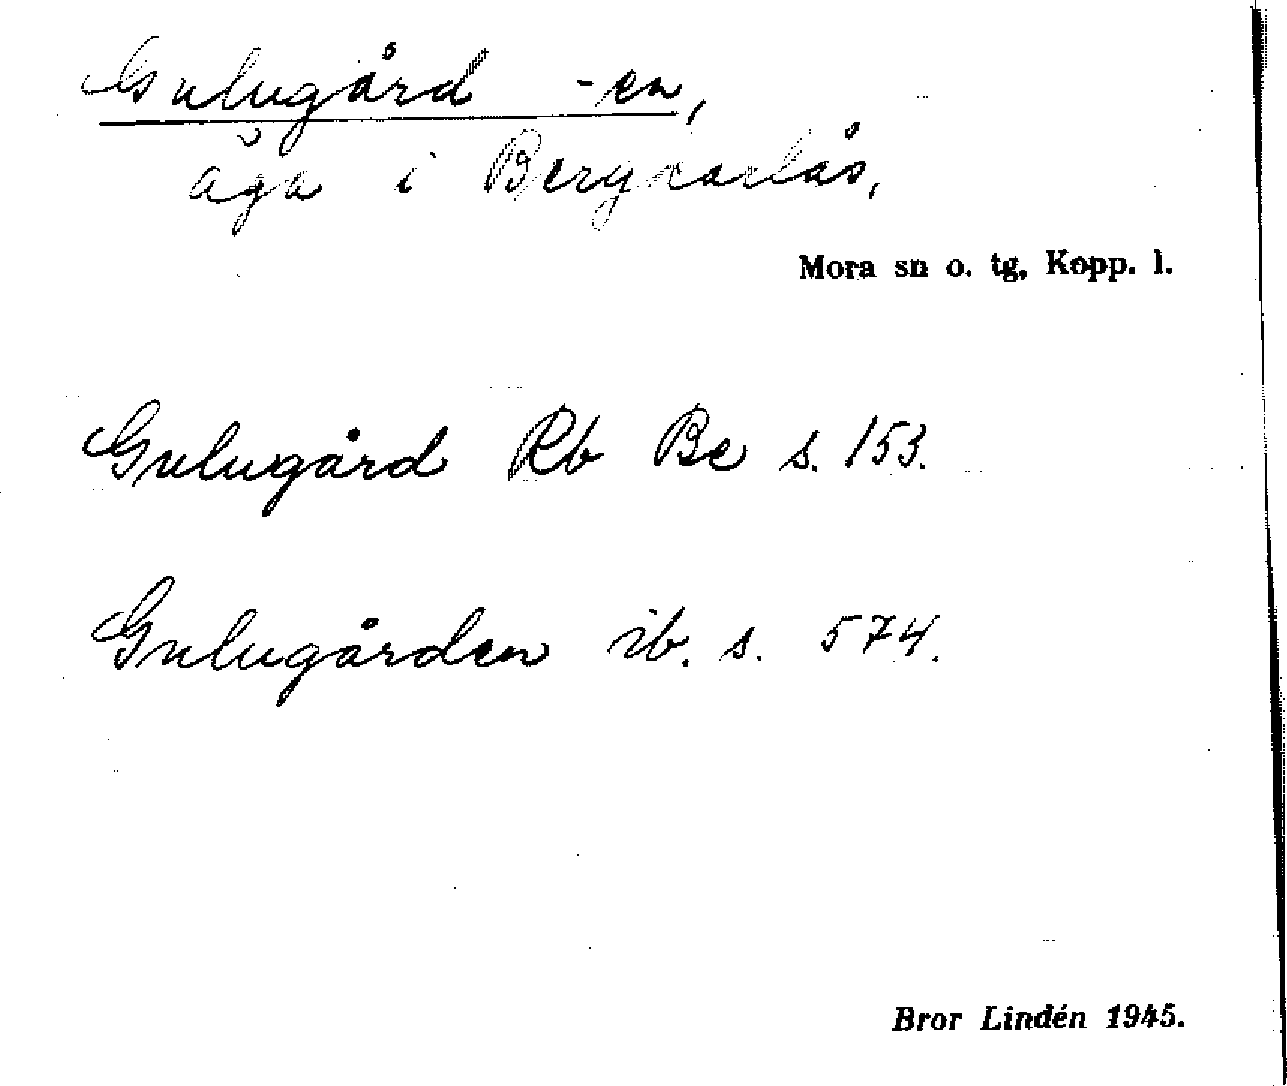 Gulugård -en,
äga i Bergkarlås,
Mora sn o. tg, Kopp. l.
Gulugård Rb Be s. 153.
Gulugården ib. s. 574.
Bror Lindén 1945.